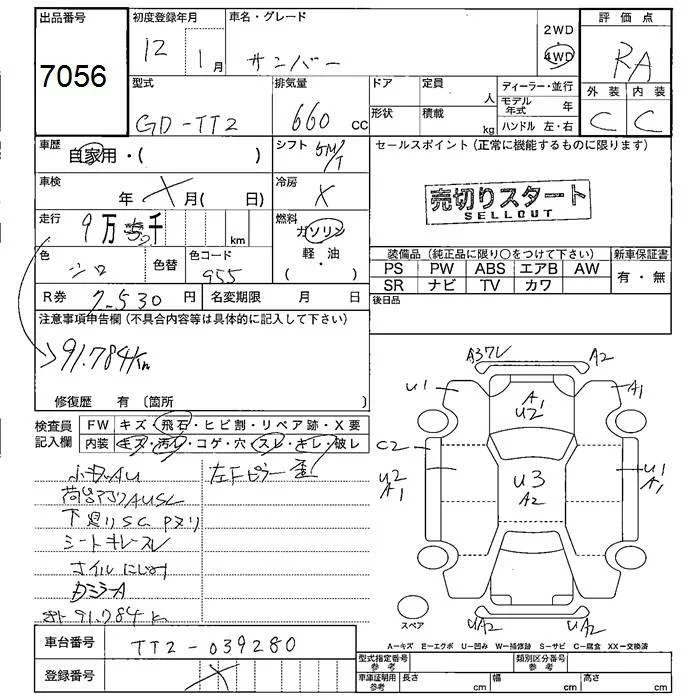 出品番号
7056
初度登録年月
12 1月
車名・グレード
サンバー
2WD
4WD
評価点
RA
外装 内装
C C
型式
GD-TT2
排気量
660 cc
ドア 定員 人
形状 積載 kg
ディーラー・並行
モデル年式 年
ハンドル 左・右
車歴
自家用・( )
シフト 5M/T
セールスポイント (正常に機能するものに限ります)
車検
年 月( 日)
冷房 X
売切りスタート
SELLOUT
走行
9万 千 km
燃料
ガソリン
・
軽・油
( )
色
シロ
色替
色コード
955
装備品 (純正品に限り○をつけて下さい)
新車保証書
PS PW ABS エアB AW
SR ナビ TV カワ
有・無
後日品
R券 7530 円
名変期限 月 日
注意事項申告欄 (不具合内容等は具体的に記入して下さい)
91.784km
修復歴 有 〔箇所 〕
検査員記入欄
FW キズ・飛石・ヒビ割・リペア跡・X要
内装 キズ・汚レ・コゲ・穴・スレ・キレ・破レ
左Fピラー歪
下廻りSC Pヌリ
シートキレスレ
オイルにじみ
91.784k
A3ワレ A2
U1 A1 U2 A1
C2
U2 A1 U3 A2 U1 A1
UA2 UA2
スペア
A―キズ E―エクボ U―凹み W―補修跡 S―サビ C―腐食 XX―交換済
車台番号
TT2-039280
登録番号
型式指定番号 参考
類別区分番号 参考
車庫証明用 参考
長さ cm 幅 cm 高さ cm